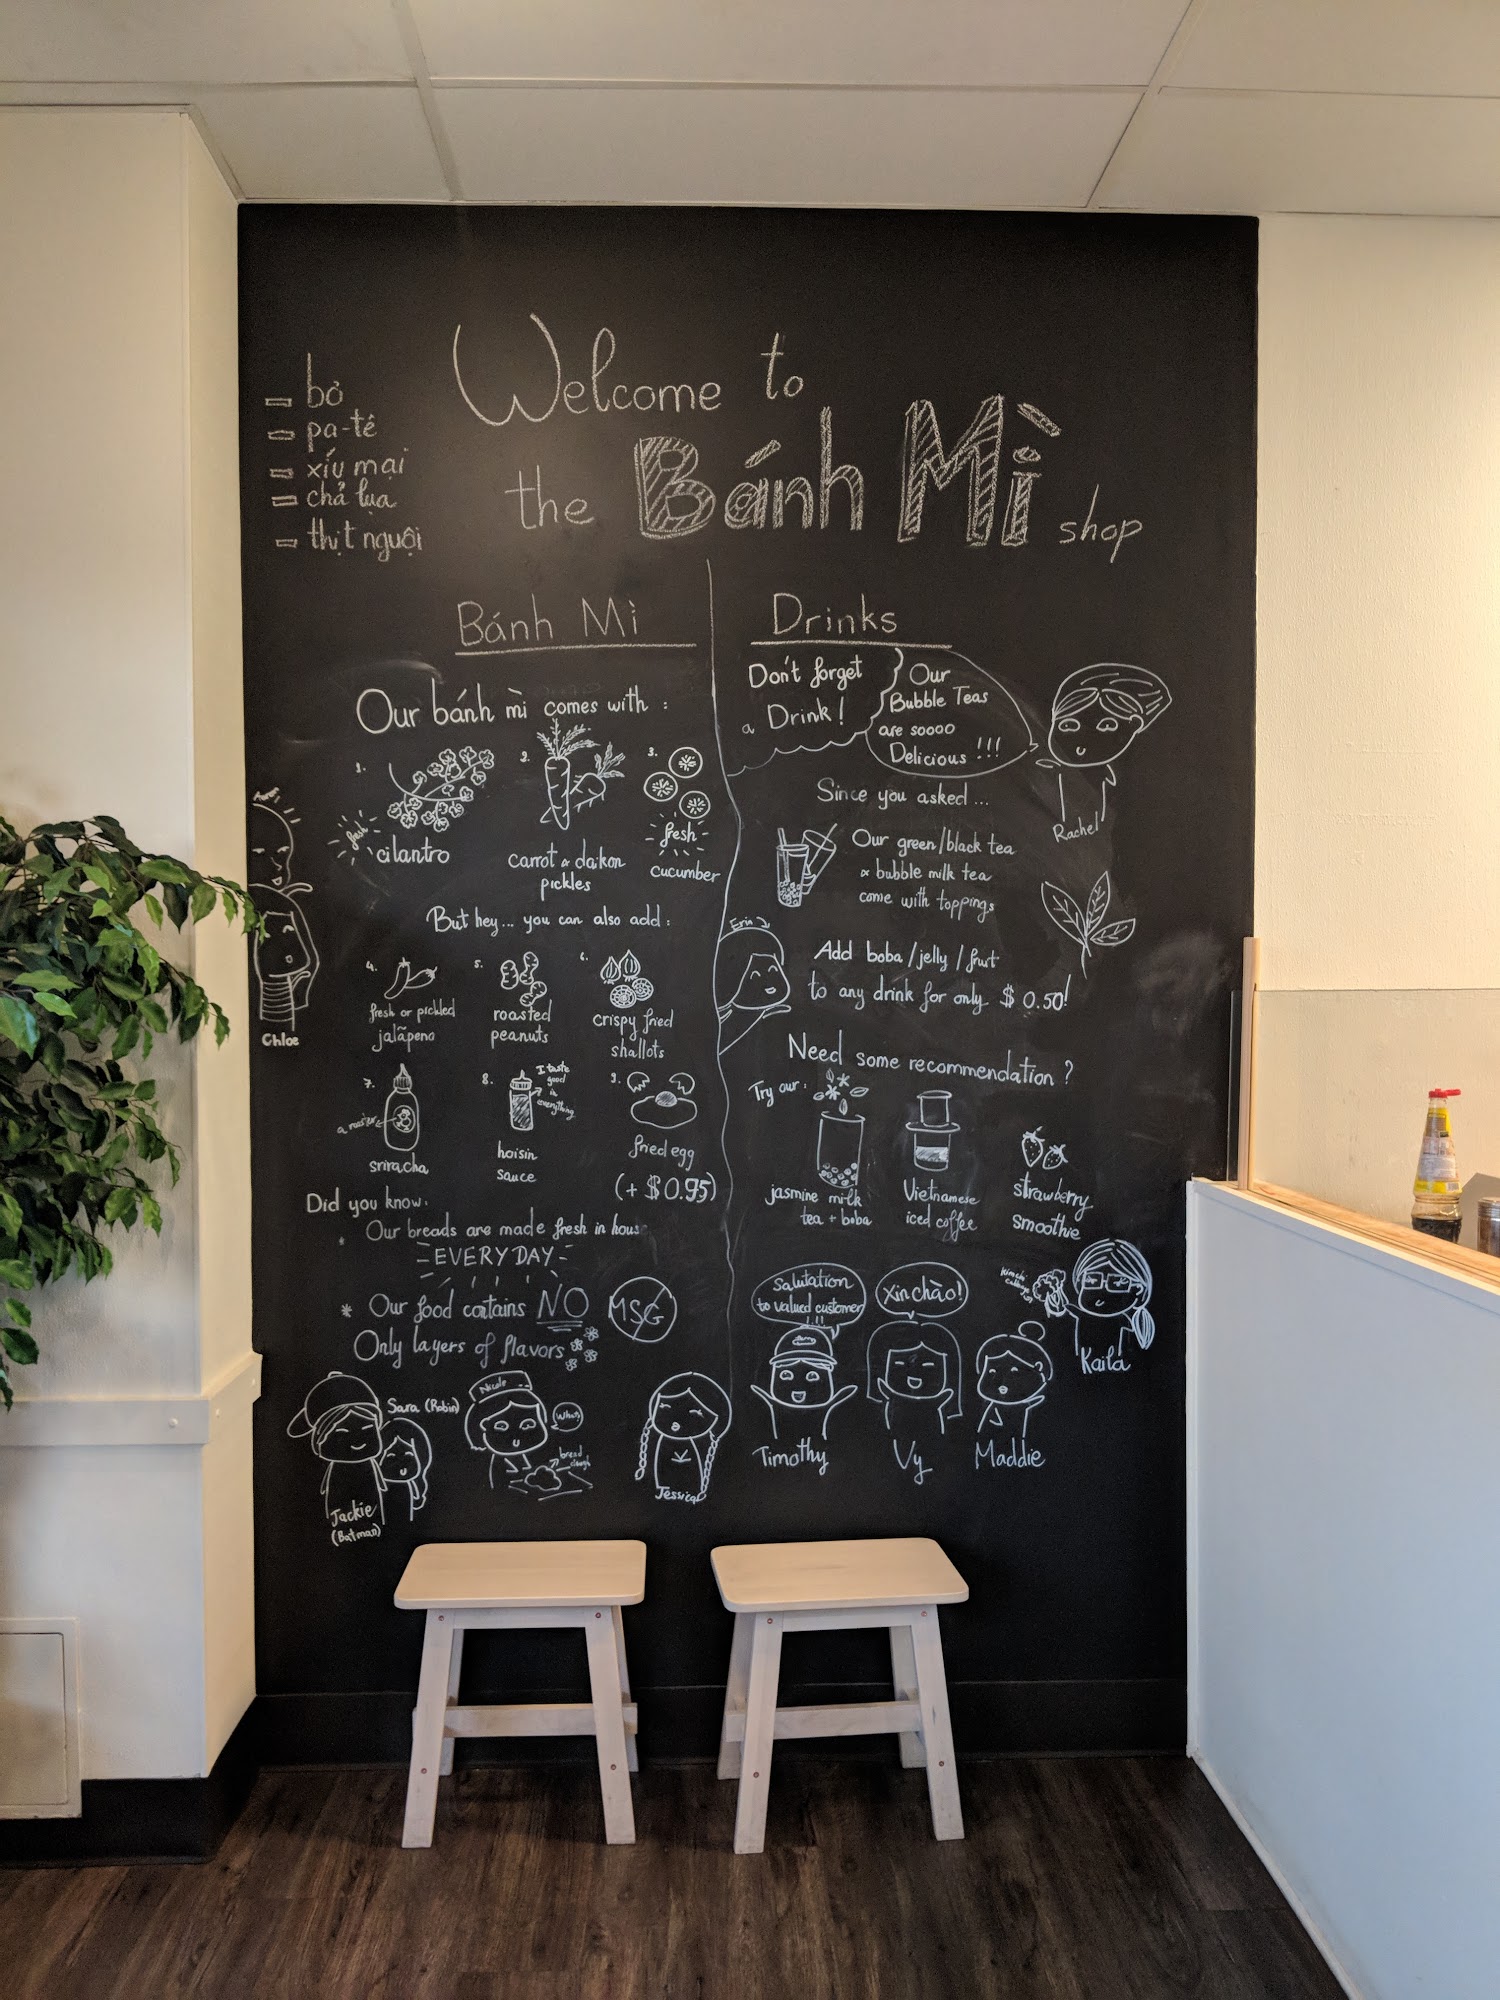 Welcome to
the Bánh Mì shop
- bò
- pa-tê
- xíu mại
- chả lụa
- thịt nguội
Bánh Mì
Our bánh mì comes with :
1.
fresh
cilantro
2.
carrot & daikon
pickles
3.
fresh
cucumber
But hey... you can also add :
4.
fresh or pickled
jalãpeno
5.
roasted
peanuts
6.
crispy fried
shallots
7.
sriracha
8.
I taste
good
in
everything
hoisin
sauce
9.
fried egg
(+ $0.95)
Did you know:
* Our breads are made fresh in hous
EVERY DAY
* Our food contains NO MSG
Only layers of flavors
Chloe
Sara (Robin)
Jackie
(Batman)
Nicole
bread
dough
Jessica
Drinks
Don't forget
a Drink!
Our
Bubble Teas
are soooo
Delicious !!!
Rachel
Since you asked...
Our green/black tea
& bubble milk tea
come with toppings
Erin
Add boba/jelly/fruit
to any drink for only $0.50!
Need some recommendation ?
Try our :
jasmine milk
tea + boba
Vietnamese
iced coffee
strawberry
smoothie
Salutation
to valued customer
!!!
xin chào!
Timothy
Vy
Maddie
Kaila